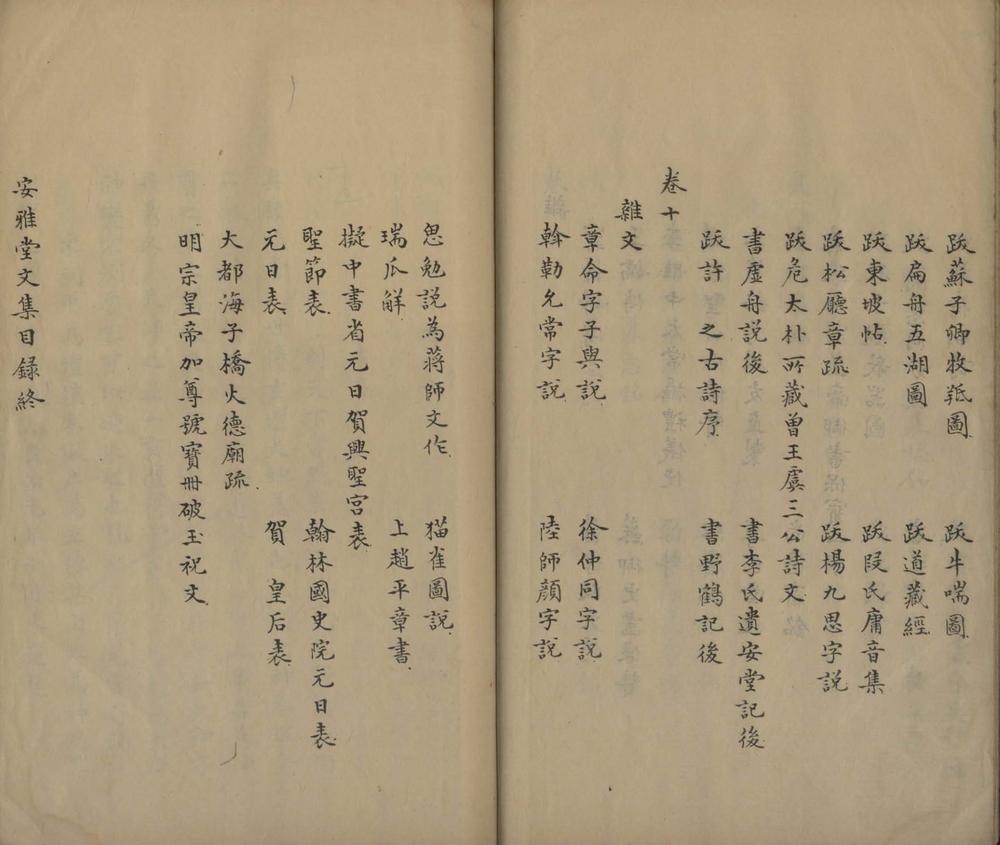 跋蘇子卿牧羝圖　跋牛喘圖
跋扁舟五湖圖　跋道藏經
跋東坡帖　跋段氏庸音集
跋松廳章疏　跋楊九思字説
跋危太朴所藏曽王虞三公詩文
書虚舟説後　書李氏遺安堂記後
跋許　之古詩序　書野鶴記後
卷十
雜文
章命字子與説　徐仲同字説
斡勒允常字説　陸師顔字説
思勉説為蔣師文作　猫雀圖説
瑞瓜解　上趙平章書
擬中書省元日賀興聖宫表
聖節表　翰林國史院元日表
元日表　賀　皇后表
大都海子橋火德廟疏
明宗皇帝加尊號寳冊破玉祝文
安雅堂文集目録終